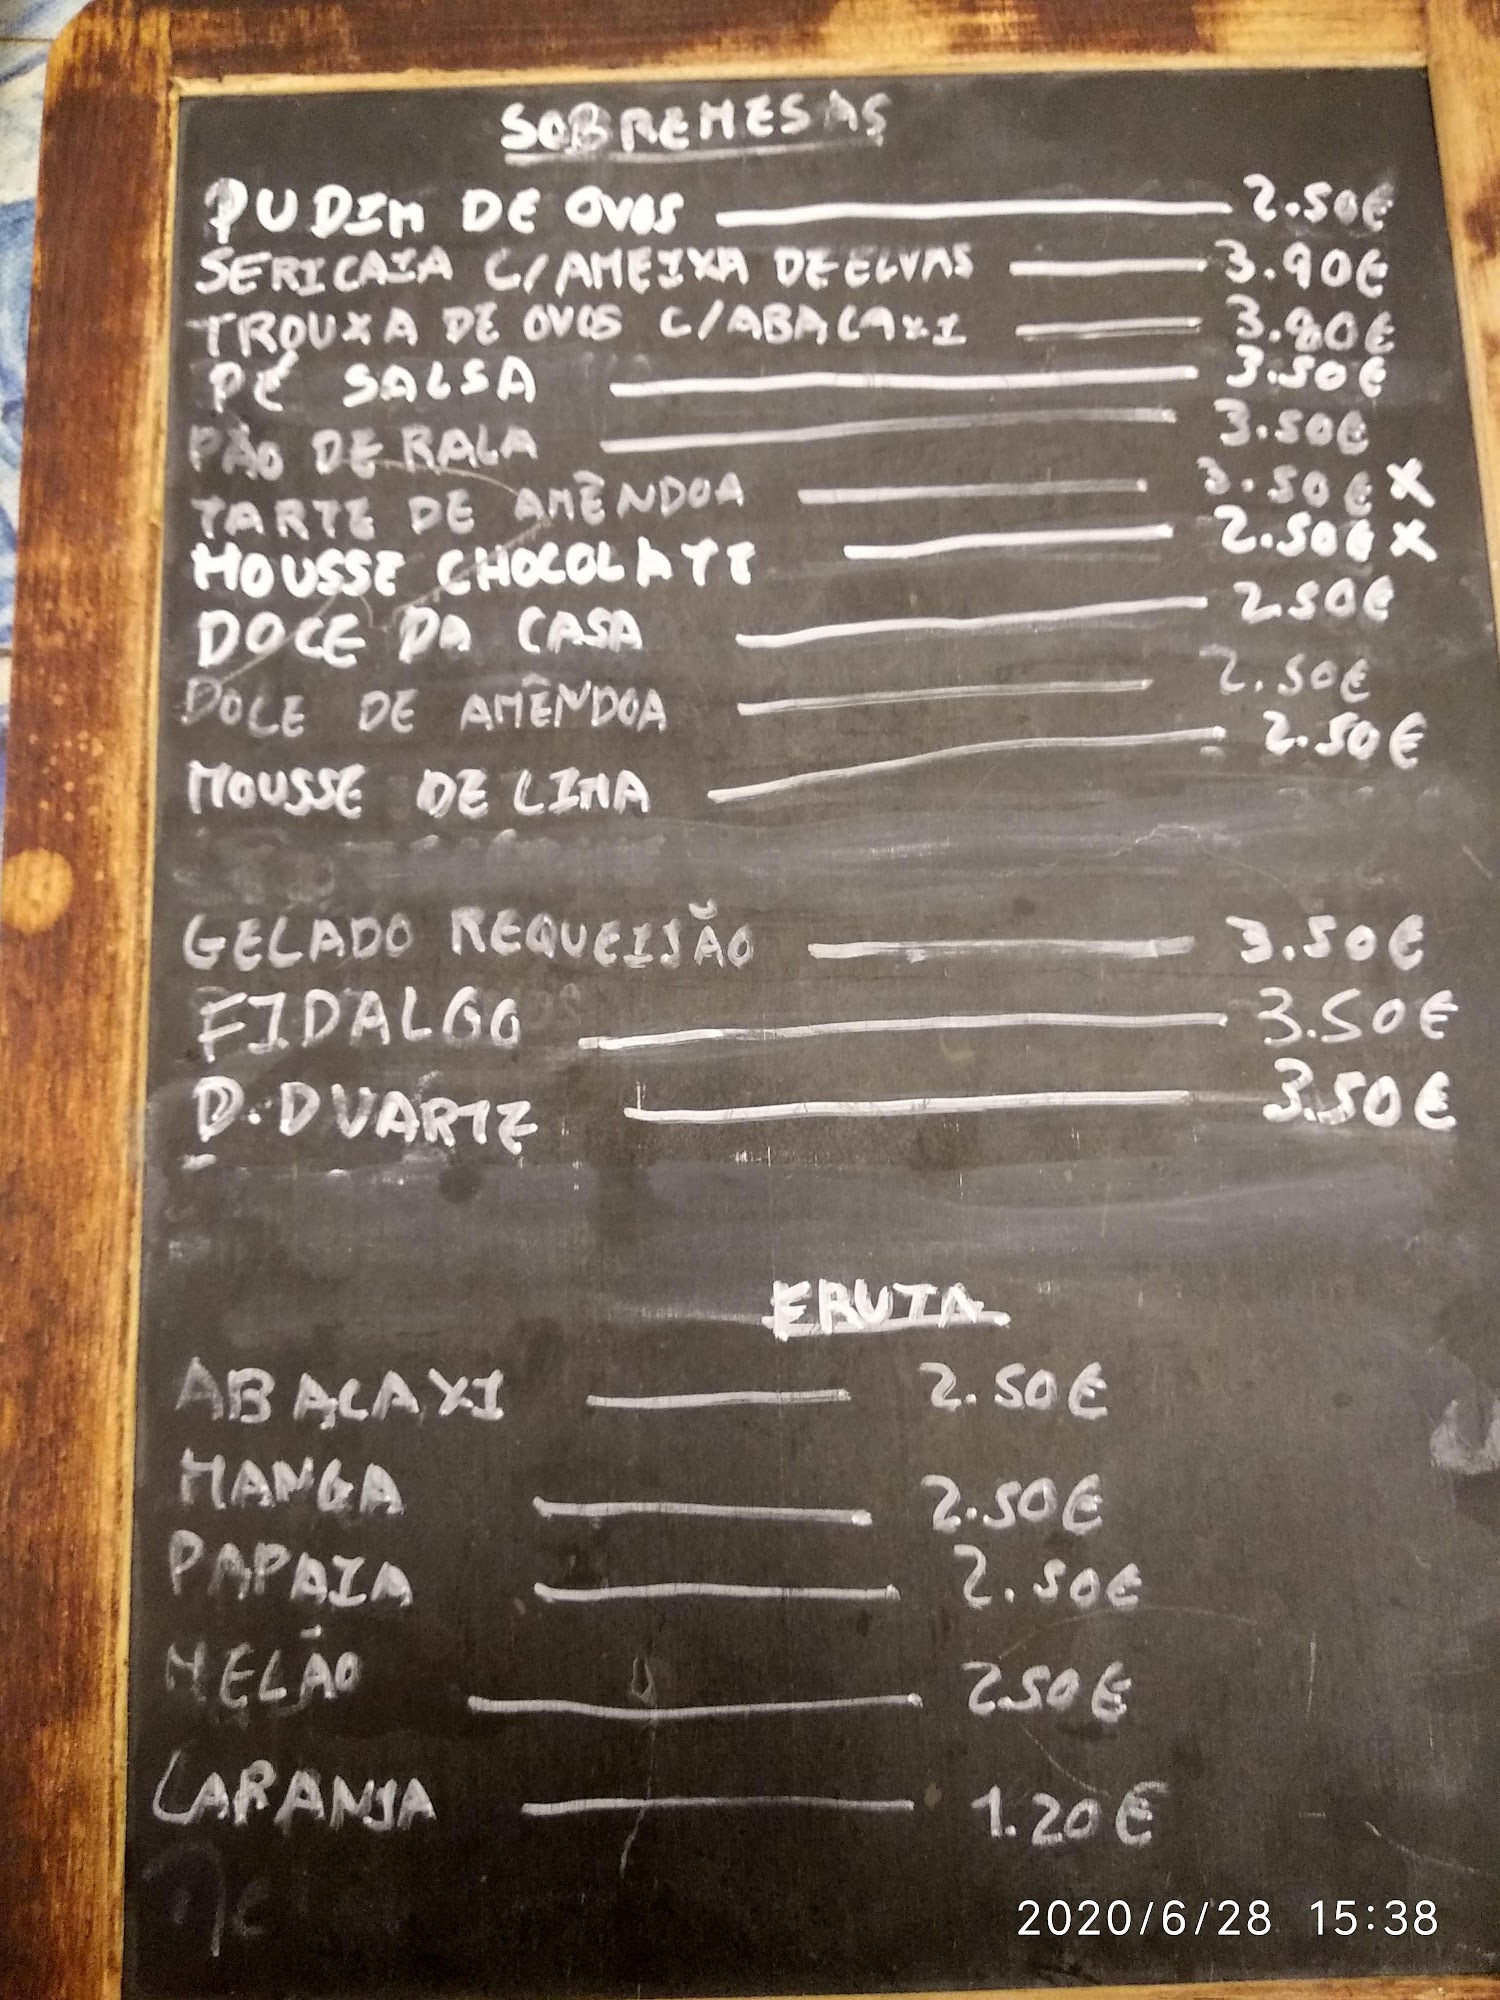 SOBREMESAS
PUDIM DE OVOS 2.50€
SERICAIA C/AMEIXA DE ELVAS 3.90€
TROUXA DE OVOS C/ABACAXI 3.90€
PÉ SALSA 3.50€
PÃO DE RALA 3.50€
TARTE DE AMÊNDOA 3.50€ X
MOUSSE CHOCOLATE 2.50€ X
DOCE DA CASA 2.50€
DOCE DE AMÊNDOA 2.50€
MOUSSE DE LIMA 2.50€
GELADO REQUEIJÃO 3.50€
FIDALGO 3.50€
D.DUARTE 3.50€
FRUTA
ABACAXI 2.50€
MANGA 2.50€
PAPAIA 2.50€
MELÃO 2.50€
LARANJA 1.20€
2020/6/28 15:38